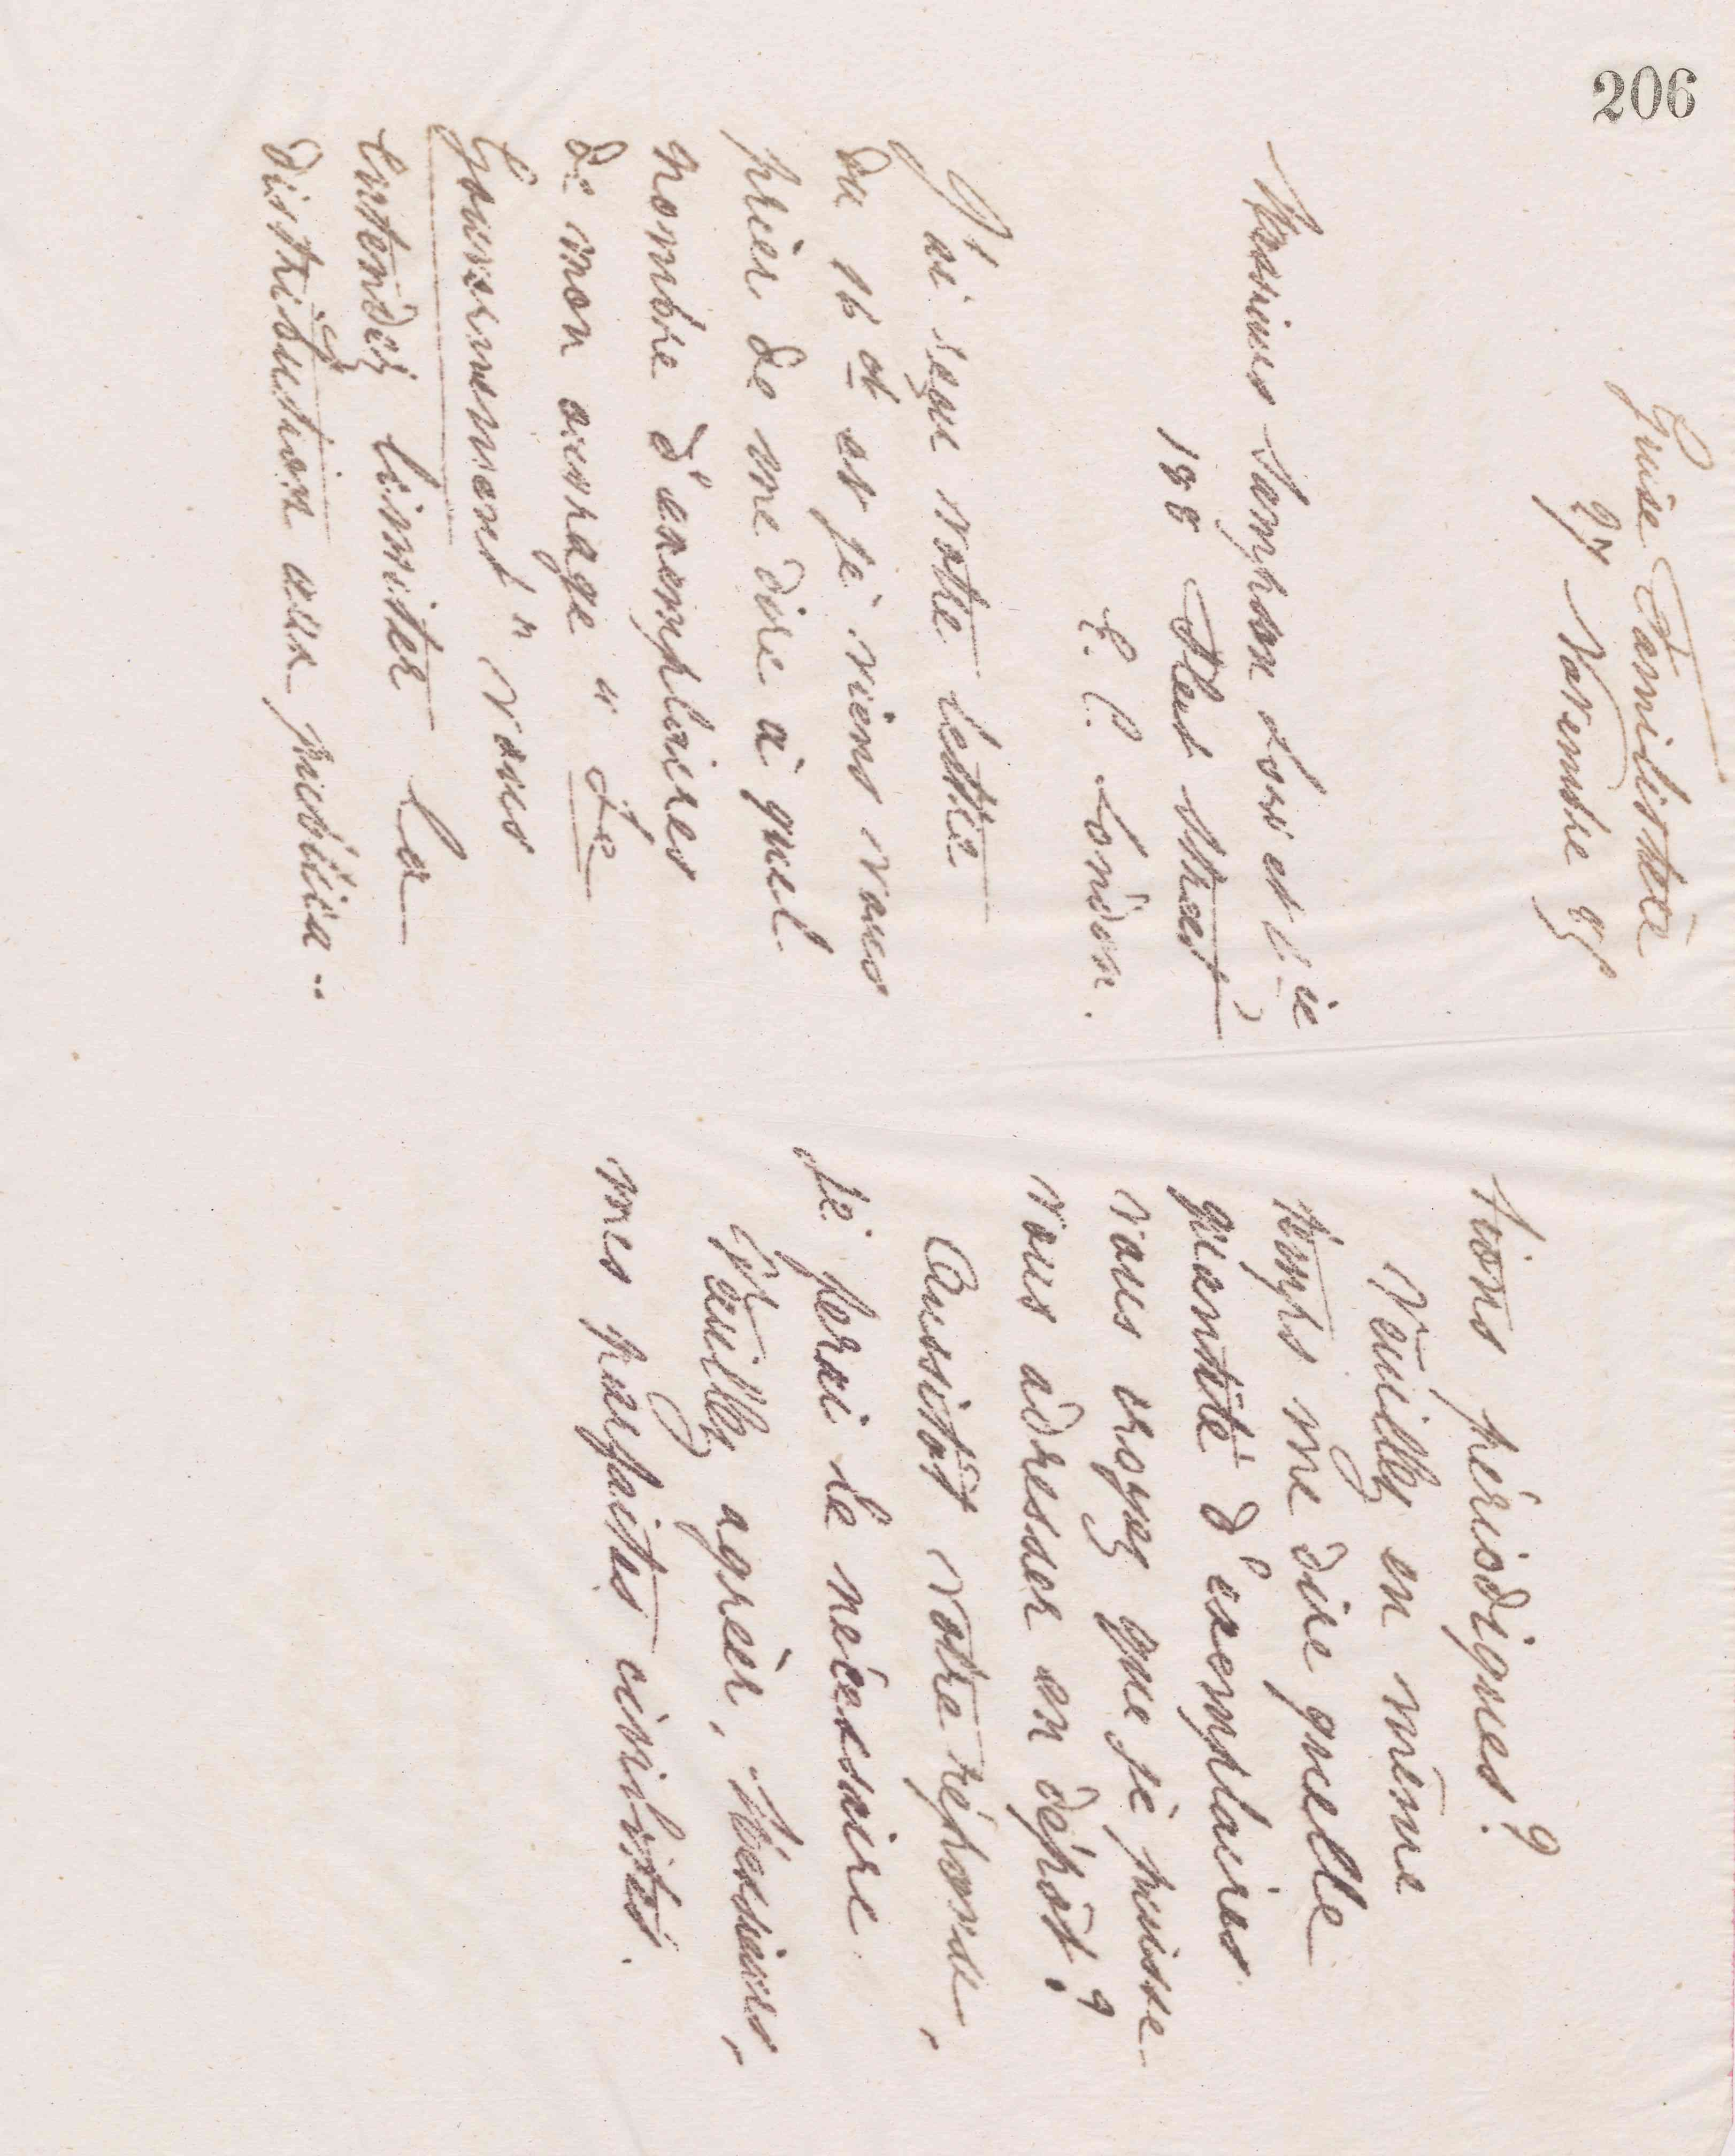 206
Guise Familistère
27 Novembre 91
Messieurs Sampson Low et Cie
188 Fleet Street
E. C. London.
J'ai reçu votre lettre
du 16 ct et je viens vous
prier de me dire à quel
nombre d'exemplaires
de mon ouvrage " Le
Gouvernement " vous
entendez limiter la
distribution aux publica-
tions périodiques ?
Veuillez en même
temps me dire quelle
quantité d'exemplaires
vous croyez que je puisse
vous adresser en dépôt ?
Aussitôt votre réponse,
je ferai le nécessaire.
Veuillez agréer, Messieurs,
mes parfaites civilités.